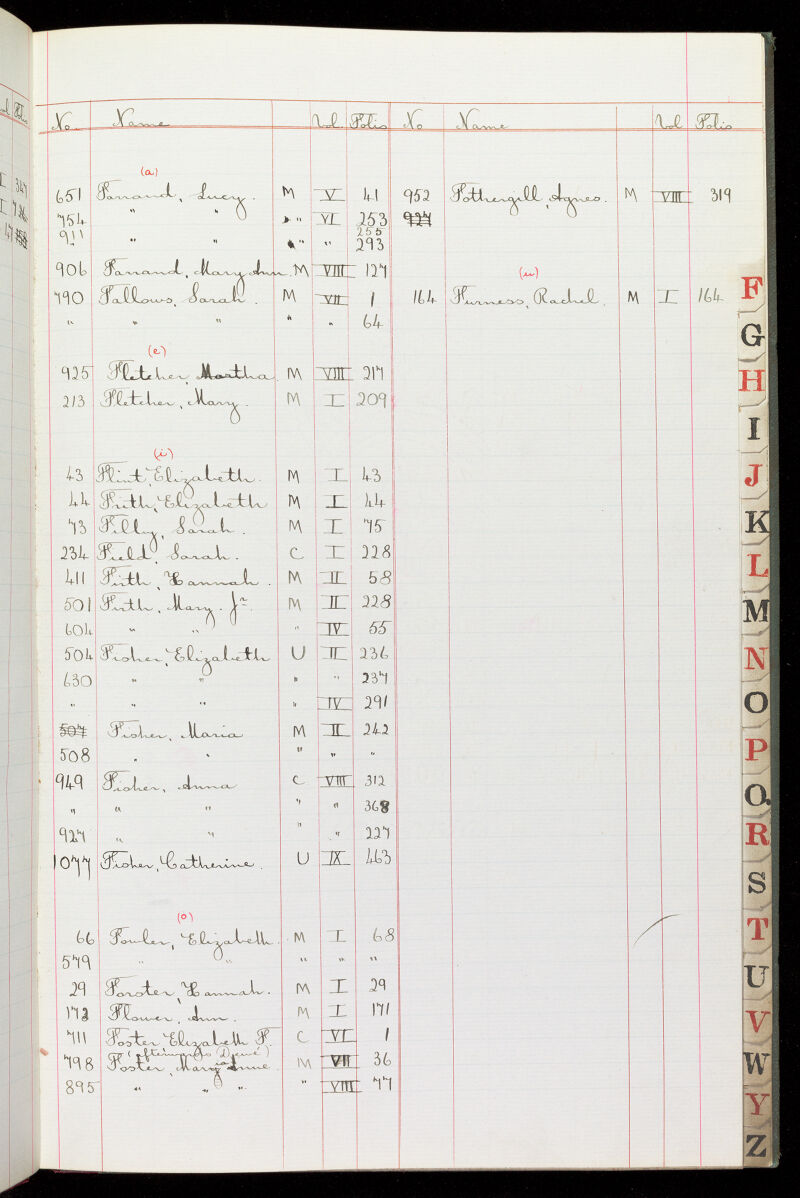 No. Name Vol. Folio No Name Vol Folio
(a)
651 Farrand, Lucy. M V 41
754 " " " VI 253
255
911 " " " " 293
906 Farrand, Mary Ann. M VIII 127
790 Fallows, Sarah. M VII 1
" " " " " 64
(e)
925 Fletcher, Martha M VIII 217
213 Fletcher, Mary. M I 209
(i)
43 Flint, Elizabeth. M I 43
44 Frith, Elizabeth M I 44
73 Filly, Sarah. M I 75
234 Field, Sarah. C I 228
411 Firth, Hannah. M II 58
501 Firth, Mary. Jr. M II 228
604 " " " IV 55
504 Fisher, Elizabeth U II 236
630 " " " " 237
" " " " IV 291
507 Fisher, Maria M II 242
508 " " " " "
949 Fisher, Anna C VIII 312
" " " " " 368
927 " " " " 227
1077 Fisher, Catherine. U IX 463
(o)
66 Fowler, Elizabeth. M I 68
579 " " " " "
29 Forster, Hannah. M I 29
172 Flower, Ann. M I 171
711 Foster Elizabeth P. C VI 1
(afterwards )
798 Foster, Mary Anne. M VII 36
895 " " " " VIII 77
952 Fothergill, Agnes. M VIII 319
927
(u)
164 Furness, Rachel. M I 164
F
G
H
I
J
K
L
M
N
O
P
Q.
R
S
T
U
V
W
Y
Z